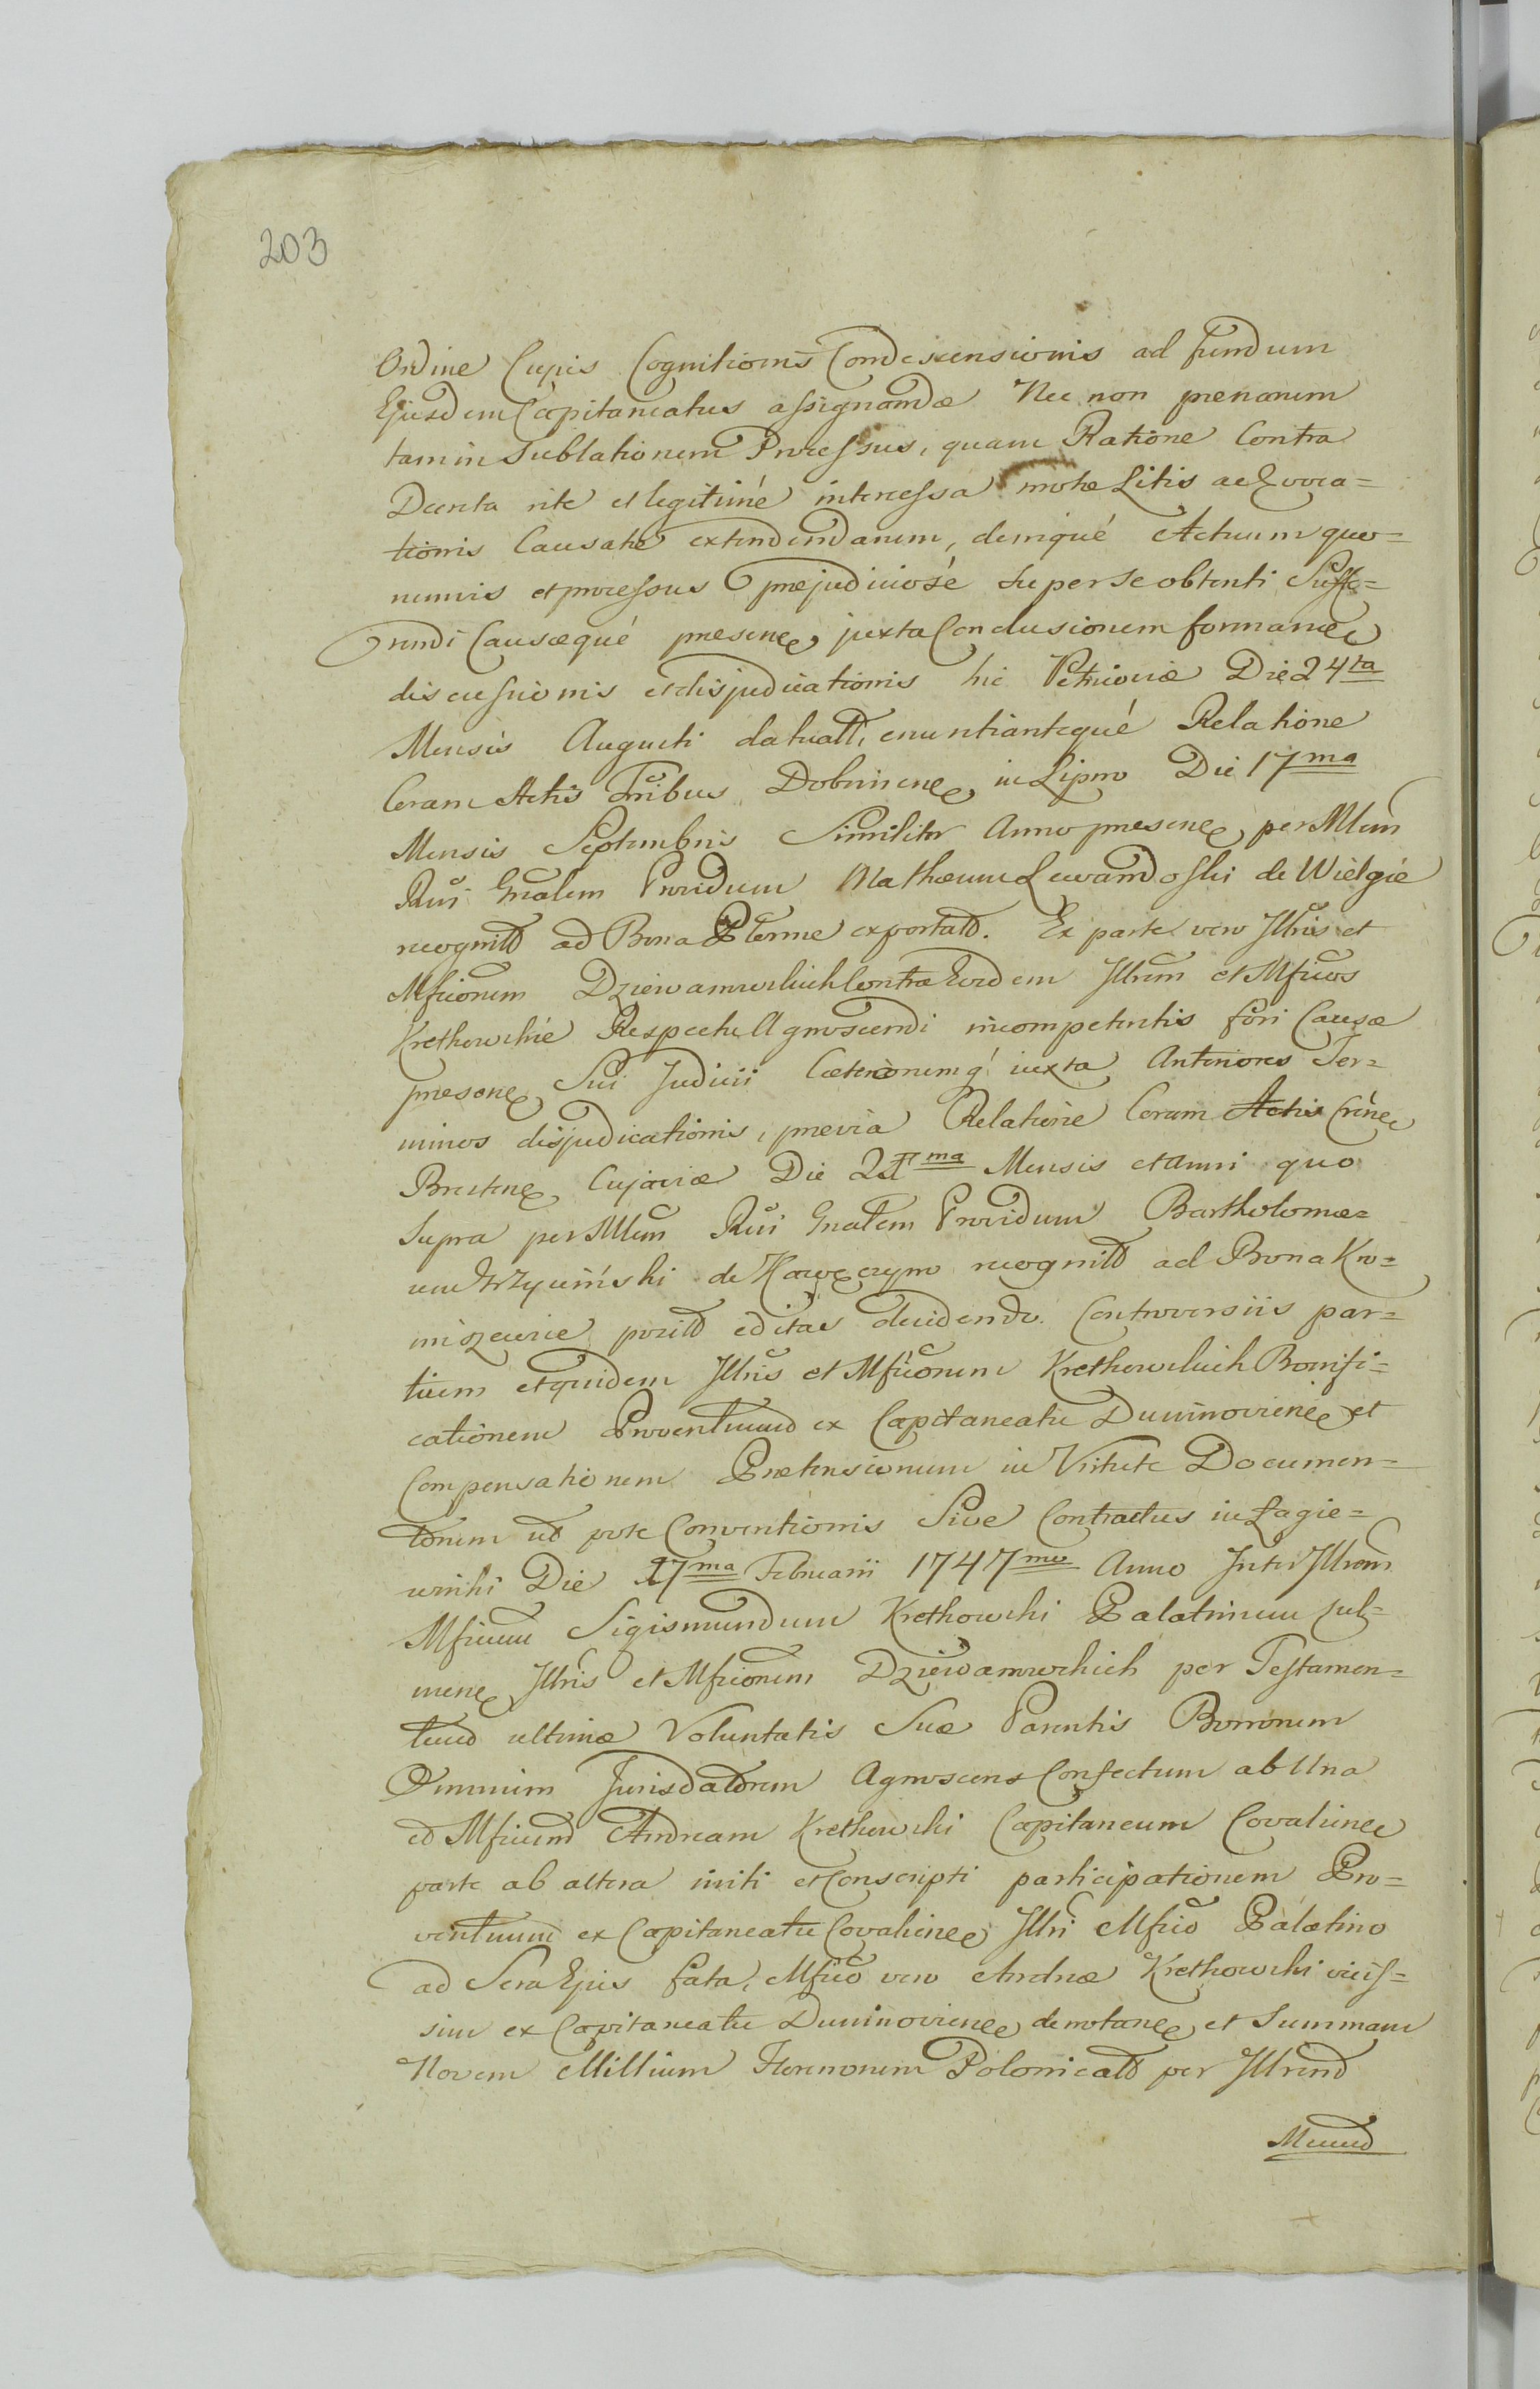 203
Ordine Cujus Cognitionis Condescensionis ad fundum
Ejusdem Capitaneatus assignandæ Nec non pænarum
tam in Sublationem Processus, quam Ratione Contra
Decreta rite et legitimé interessa motæ Litis ac Evoca=
tionis Causatæ extendendarum, deniqué Actuum quo=
rumvis et processus præjudiciosé super se obtenti Suffe=
rendi Causæqué præsene juxta Conclusionem formanee
discussionis et disjudicationis hic Petricoviæ Die 24ta
Mensis Augusti datatt, enuntiantequé Relatione
Coram Actis Tribus Dobrinene in Lipno Die 17ma
Mensis Septembris Similiter Anno præsene per Mlem
Rni Gnalem Providum Mathæum Lewandoski de Wielgie
recognitt ad Bona Płonne exportatt. Ex parte vero Jllris et
Mficorum Dziewanowskich Contra Eosdem Jllrem et Mficos
Kretkowskie Respectu Agnoscendi incompetentis fori Causæ
præsene Sui Judicii Cæterorumq́ juxta Anteriores Ter=
minos disjudicationis, prævia Relatione Coram Actis Crene
Brestene Cujaviæ Die Mensis et Anni quo
supra per Mlem Rni Gnalem Providum Bartholomæ=
um Krzywiński de Kawęczyno recognitt ad Bona Kro=
miszewice positt editas decidendo. Controversiis par=
tium et quidem Jllris et Mficorum Kretkowskich Bonifi=
cationem Proventuum ex Capitaneatu Duninoviene et
Compensationem Prætensionum in Virtute Documen=
torum ut pote Conventionis Sive Contractus in Łagie=
wniki Die 17ma Februarii 1747mo Anno Inter Jllrem
Mficum Sigismundum Kretkowski Palatinum Cul=
mene Jllris et Mficorum Dziewanowskich per Testamen=
tum ultimæ Voluntatis Suæ Parentis Bonorum
Omnium Jurisdatorem Agnoscens Confectum ab Una
et Mficum Andream Kretkowski Capitaneum Covaliene
parte ab altera initi et Conscripti participationem Pro=
ventuum ex Capitaneatu Covaliene Jllri Mfico Palatino
ad Sera Ejus fata, Mfico vero Andreæ Kretkowski vicis=
sim ex Capitaneatu Duninoviene denotane et Summam
Novem Millium Florenorum Polonicatt per Jllrem
Mficum